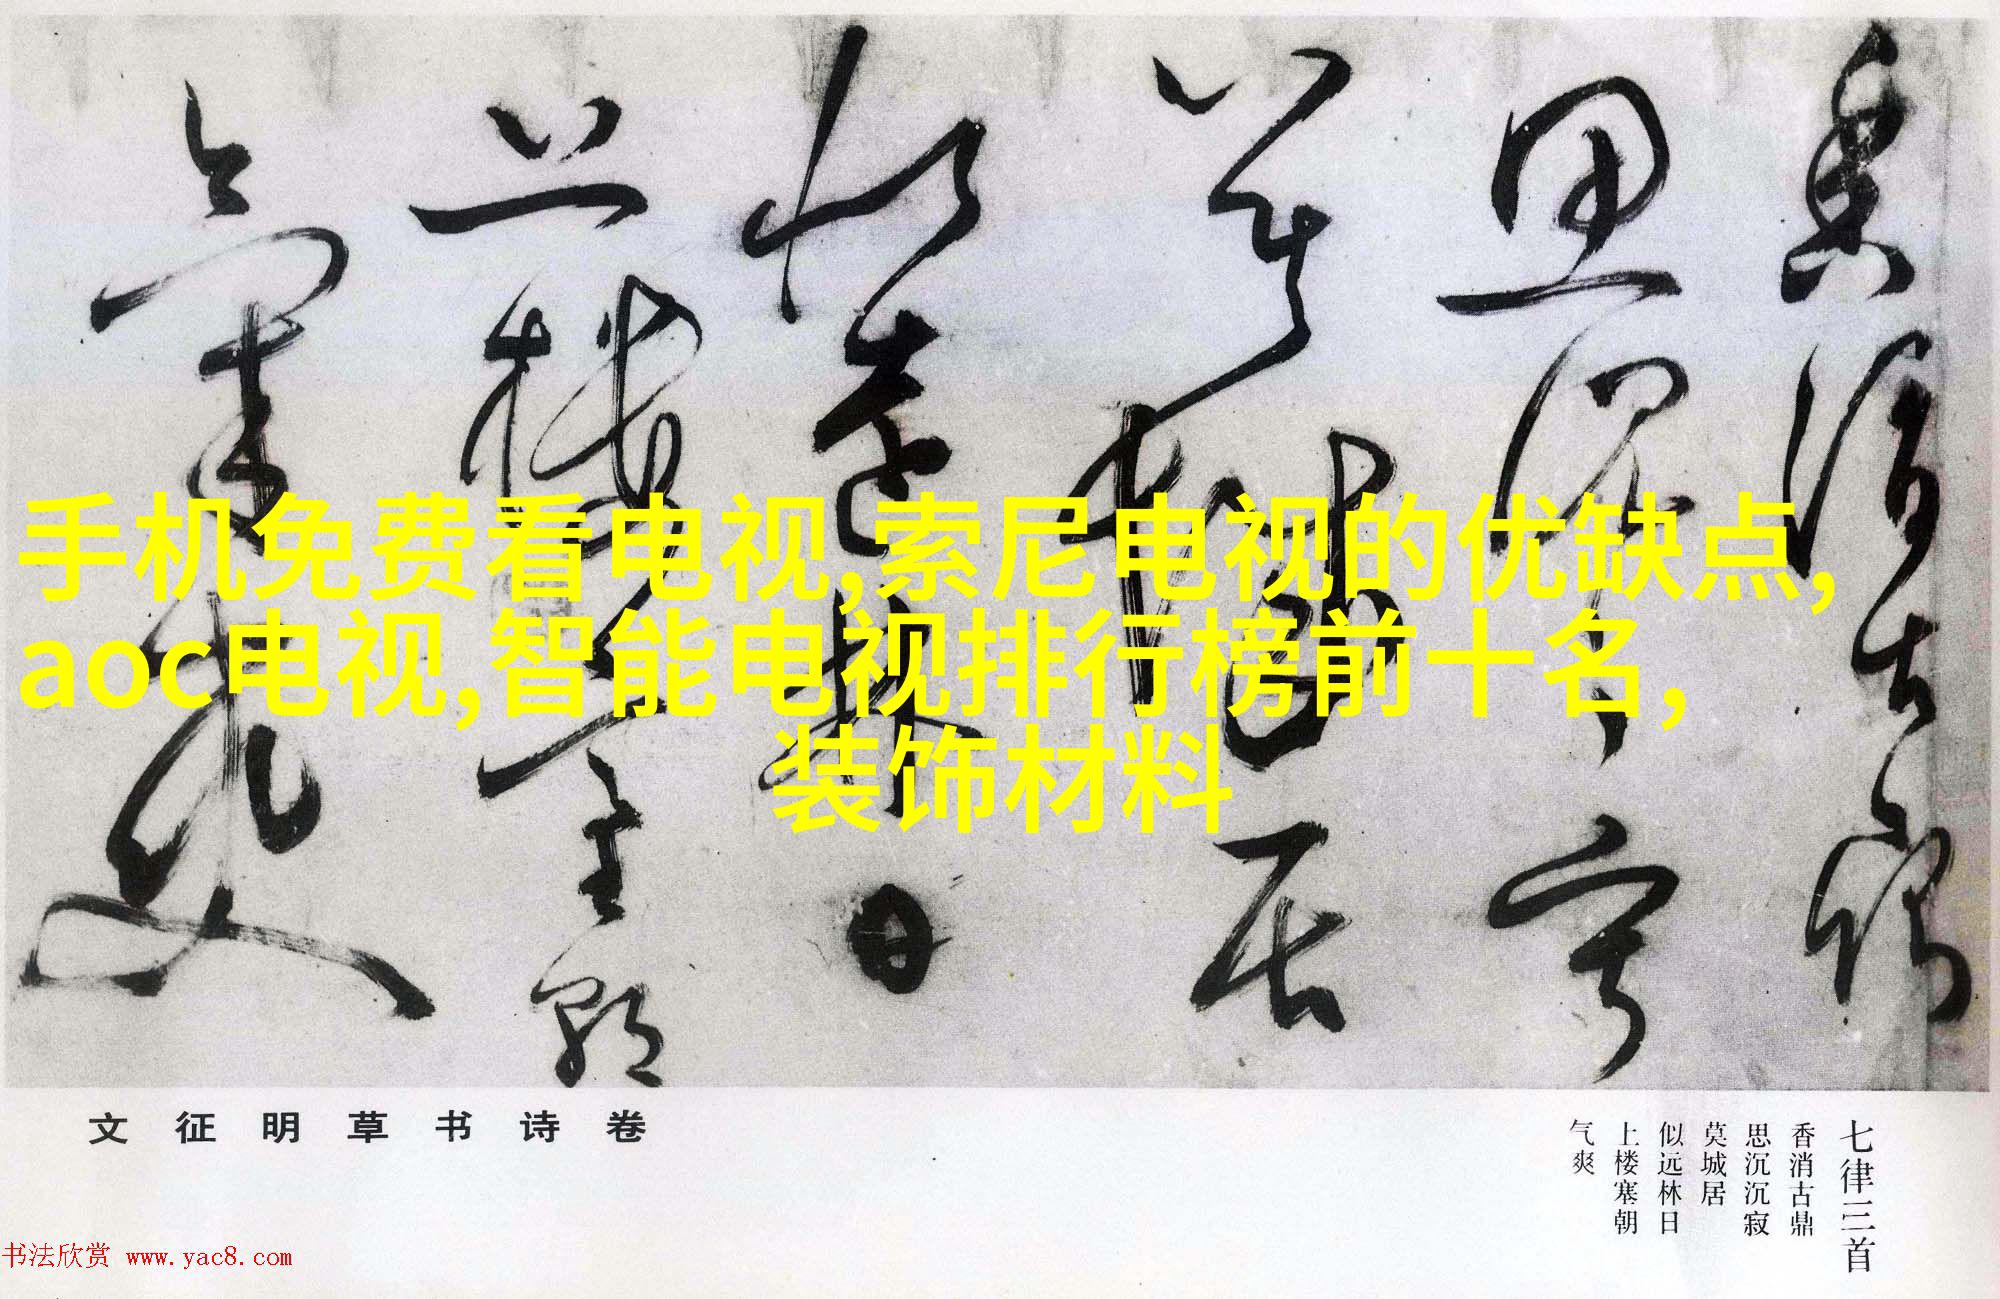 手机免费看电视,索尼电视的优缺点,
aoc电视,智能电视排行榜前十名,
装饰材料
文征明草书诗卷
七律三首
香消古鼎
思沉沉寂
莫城居
似远林日
上楼塞朝
气爽
书法欣赏 www.yac8.com